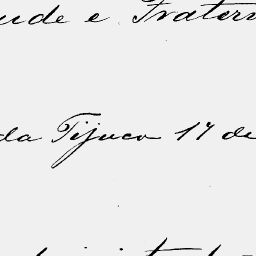 ude e Fratern
da Tijuca 17 de